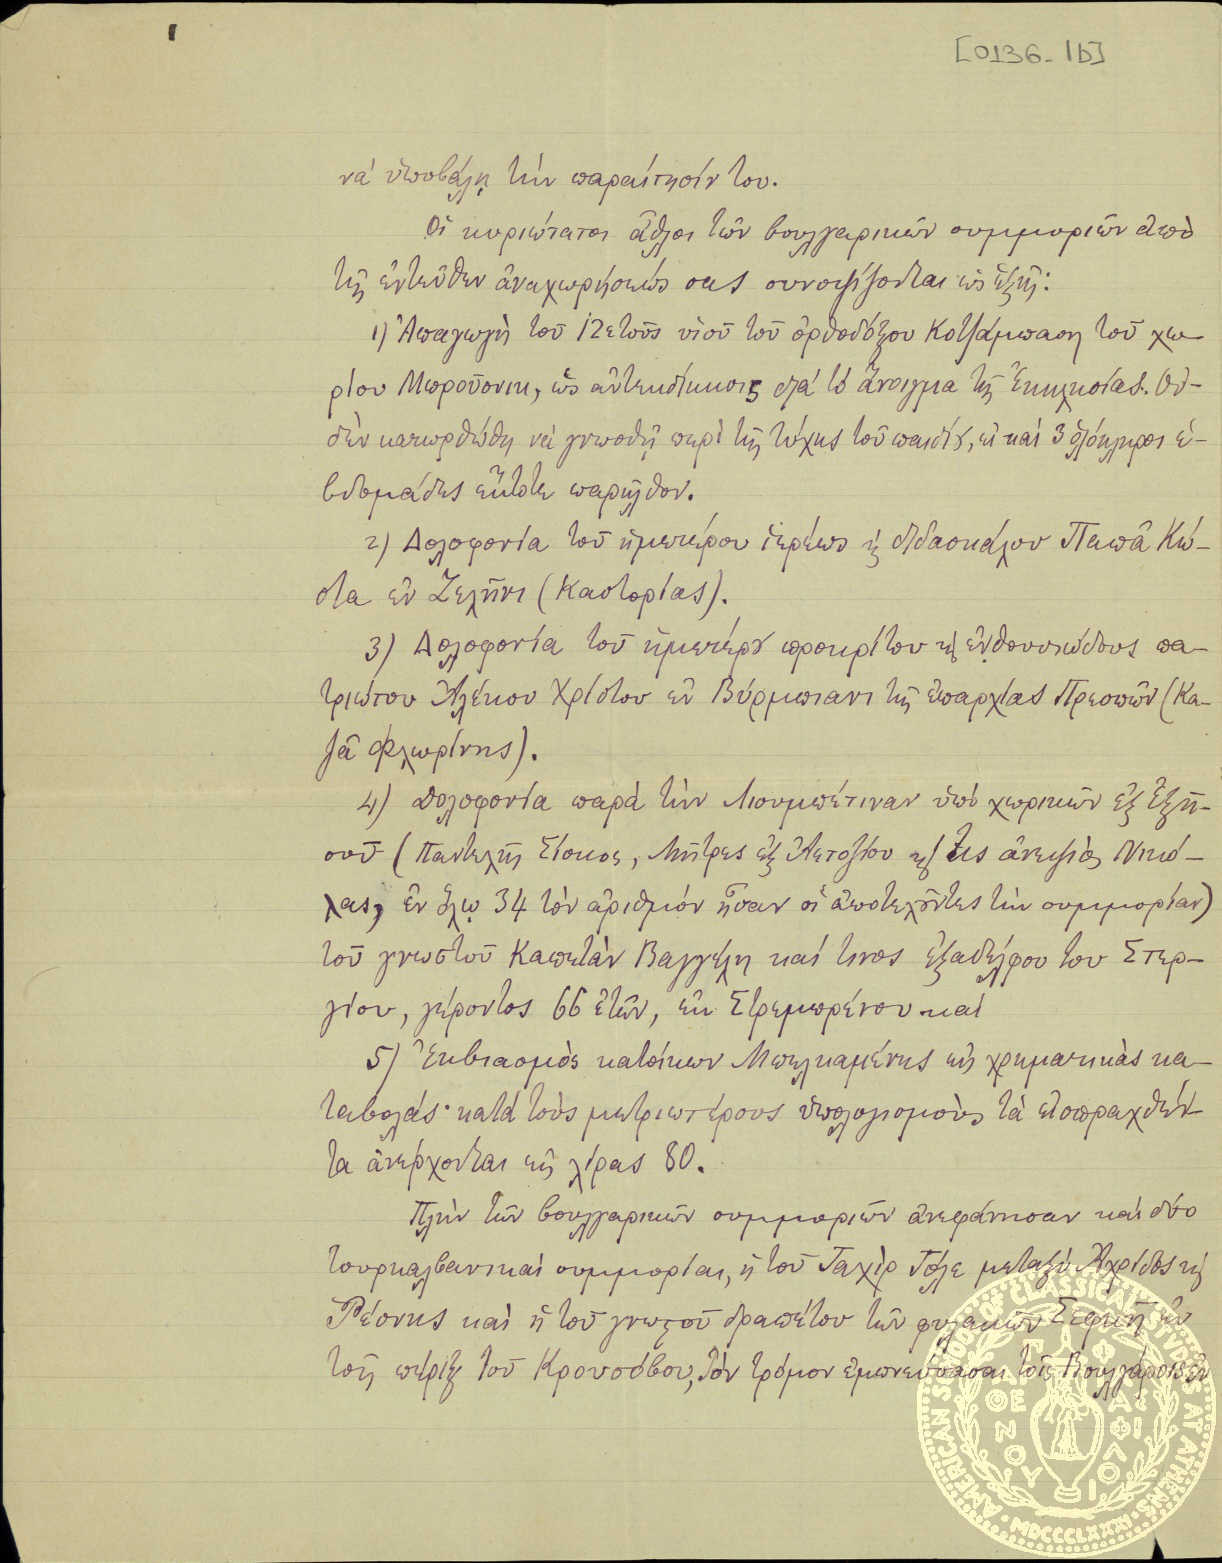 [0136-1b]
νὰ ὑποβάλῃ τὴν παραίτησίν του.
Οἱ κυριώτατοι ἆθλοι τῶν βουλγαρικῶν συμμοριῶν ἀπὸ
τῆς ἐντεῦθεν ἀναχωρήσεώς σας συνοψίζονται ὡς ἑξῆς:
1) Ἀπαγωγὴ τοῦ 12ετοῦς υἱοῦ τοῦ ὀρθοδόξου Κοτζάμπαση τοῦ χω-
ρίου Μπρούσνικ, ὡς ἀντεκδίκησις διὰ τὸ ἄνοιγμα τῆς Ἐκκλησίας. Οὐ-
δὲν κατωρθώθη νὰ γνωσθῇ περὶ τῆς τύχης τοῦ παιδίου, εἰ καὶ 3 ὁλόκληροι ἑ-
βδομάδες ἔκτοτε παρῆλθον.
2) Δολοφονία τοῦ ἡμετέρου ἱερέως ϗ διδασκάλου Παπᾶ Κώ-
στα ἐν Ζελήνι (Καστορίας).
3) Δολοφονία τοῦ ἡμετέρου προκρίτου ϗ ἐνθουσιώδους πα-
τριώτου Ἀλέκου Χρίστου ἐν Βύρμπιανι τῆς ἐπαρχίας Πρεσπῶν (Κα-
ζᾶ Φλωρίνης).
4) Δολοφονία παρὰ τὴν Λιουμπέτιναν ὑπὸ χωρικῶν ἐξ Ἐξη-
σοῦ (Παντελῆς Σίσκος, Μῆτρες ἐξ Ἀετοζίου ϗ ὁ τις ἀνεψιὸς Νικό-
λας, ἐν ὅλῳ 34 τὸν ἀριθμὸν ἦσαν οἱ ἀποτελοῦντες τὴν συμμορίαν)
τοῦ γνωστοῦ Καπετὰν Βαγγέλη καί τινος ἐξαδέλφου του Στερ-
γίου, γέροντος 66 ἐτῶν, ἐκ Στρεμπρένου καὶ
5) Ἐκβιασμὸς κατοίκων Μπελκαμένης εἰς χρηματικὰς κα-
ταβολάς· κατὰ τοὺς μετριωτέρους ὑπολογισμοὺς τὰ εἰσπραχθέν-
τα ἀνέρχονται εἰς λίρας 80.
Πλὴν τῶν βουλγαρικῶν συμμοριῶν ἀνεφάνησαν καὶ δύο
τουρκαλβανικαὶ συμμορίαι, ἡ τοῦ Ταχὶρ Τόλε μεταξὺ Ἀχρίδος ϗ
Ῥέσνης καὶ ἡ τοῦ γνωστοῦ δραπέτου τῶν φυλακῶν Σεφκῆ ἐν
τοῖς πέριξ τοῦ Κρουσόβου, τὸν τρόμον ἐμπνεύσασαι τοῖς Βουλγάροις ἐν
AMERICAN SCHOOL OF CLASSICAL STUDIES AT ATHENS
MDCCCLXXXI